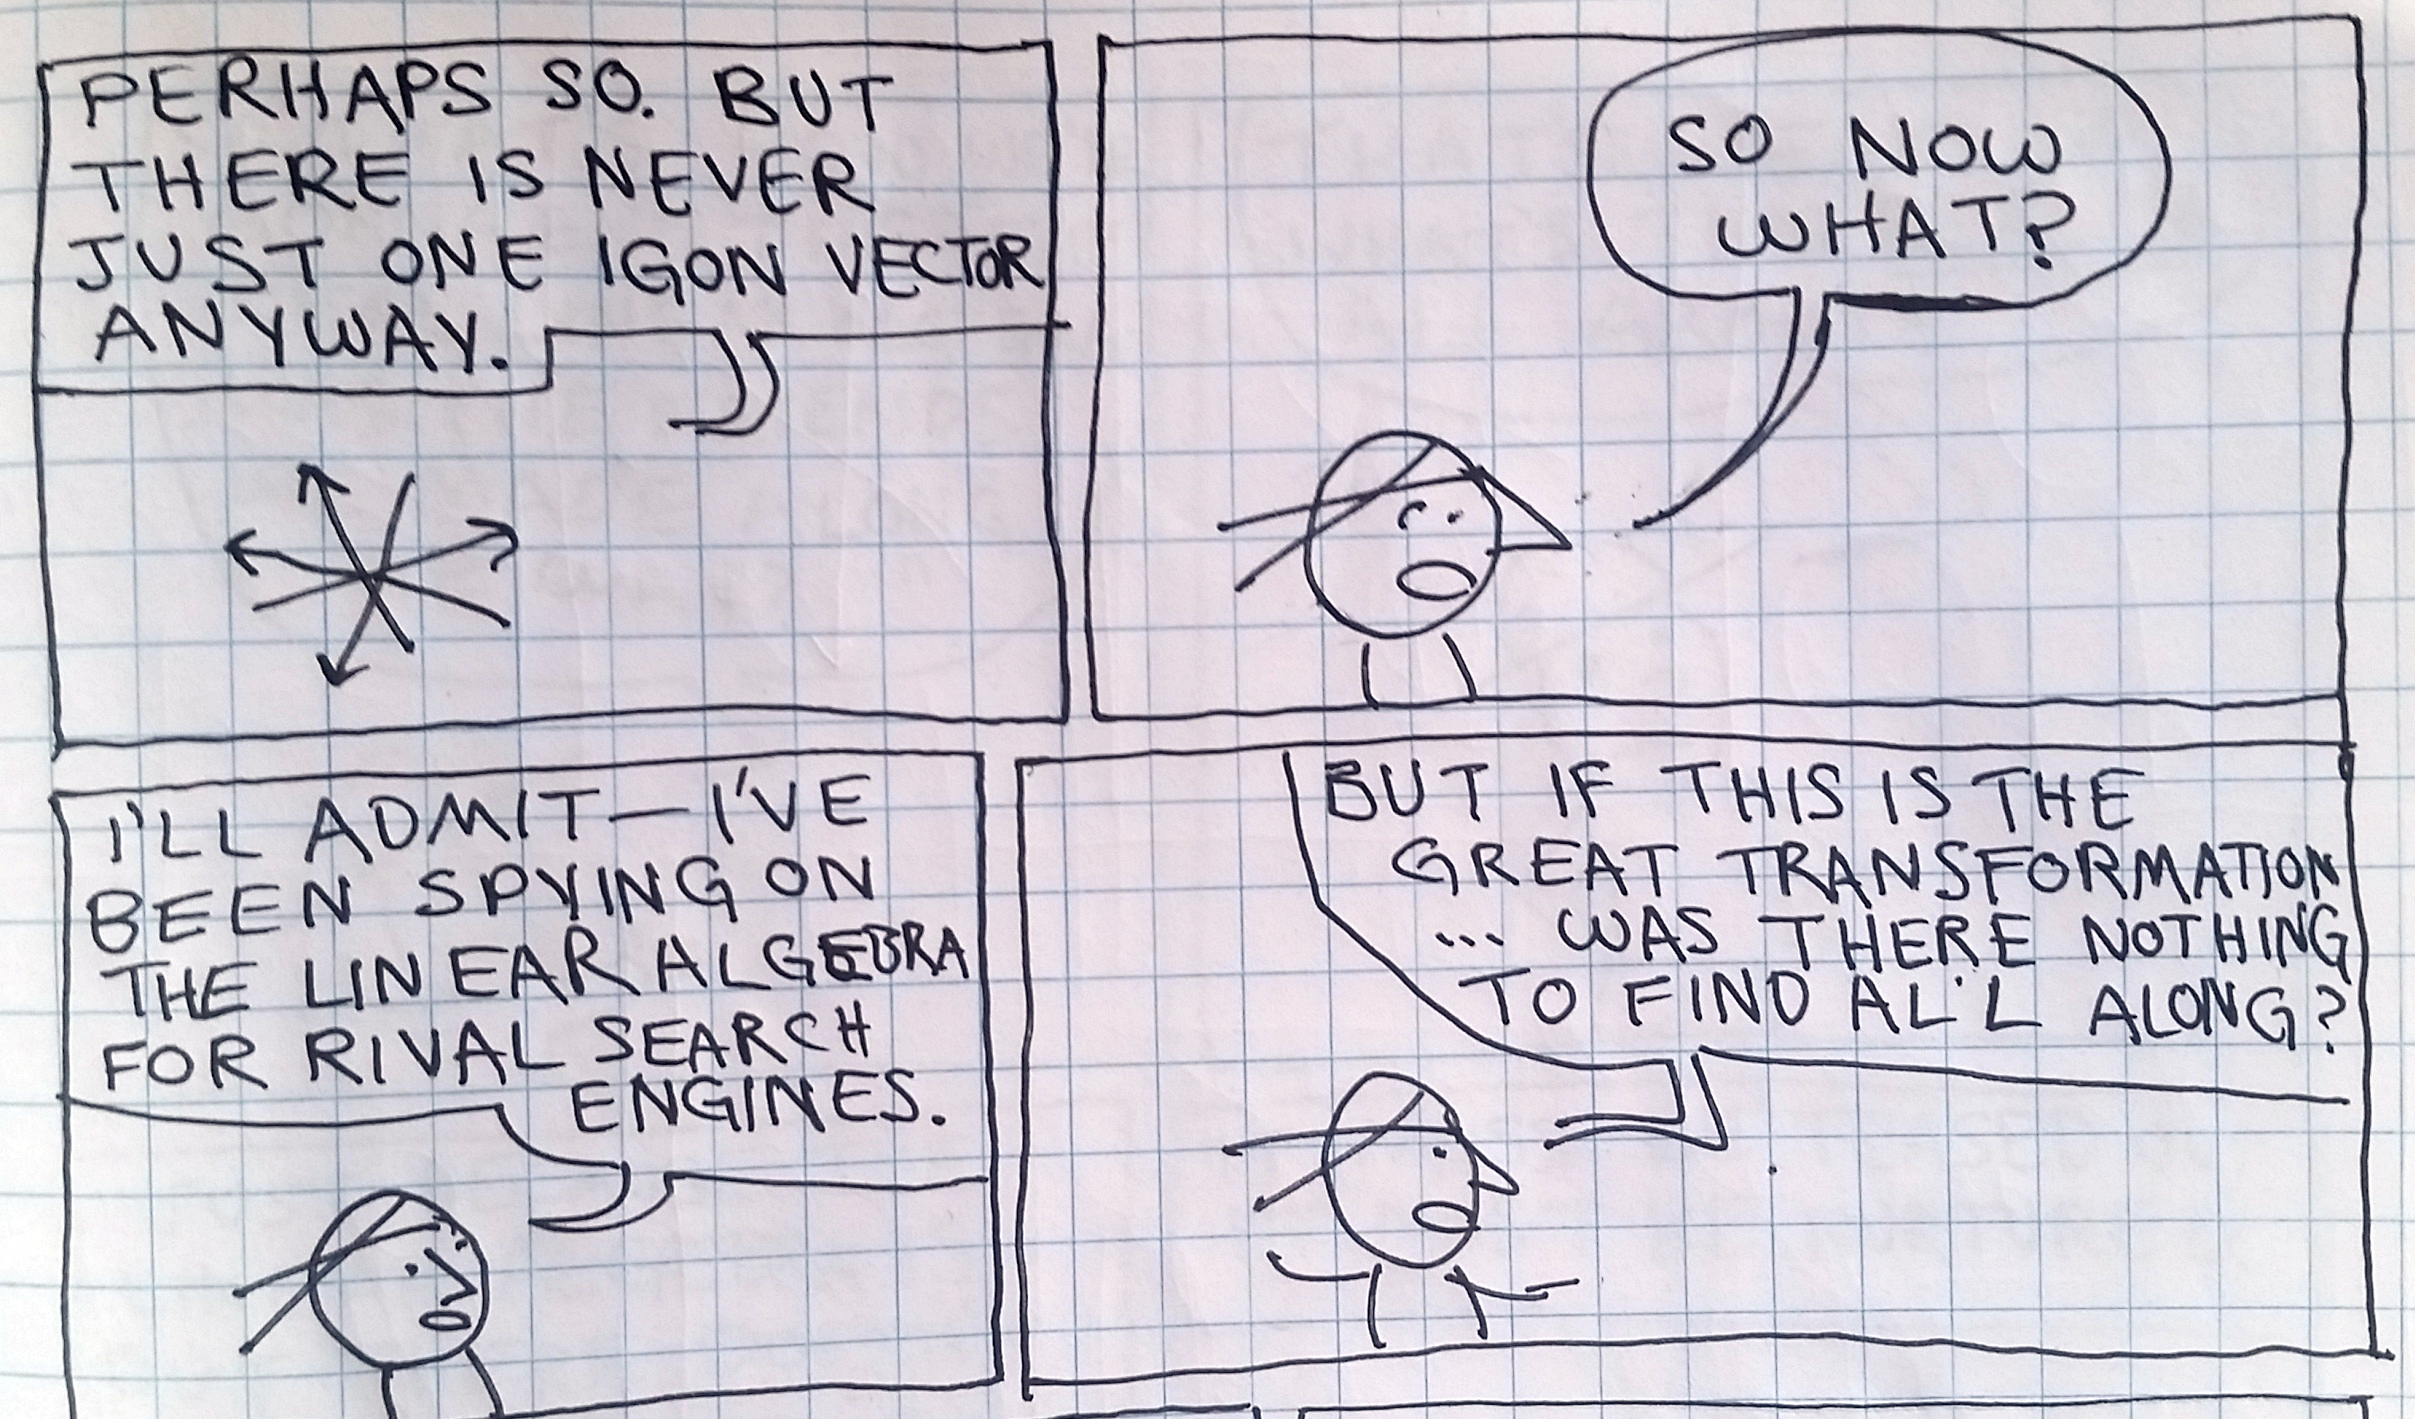 PERHAPS SO. BUT
THERE IS NEVER
JUST ONE IGON VECTOR
ANYWAY.
SO NOW
WHAT?
I'LL ADMIT—I'VE
BEEN SPYING ON
THE LINEAR ALGEBRA
FOR RIVAL SEARCH
ENGINES.
BUT IF THIS IS THE
GREAT TRANSFORMATION
... WAS THERE NOTHING
TO FIND ALL ALONG?